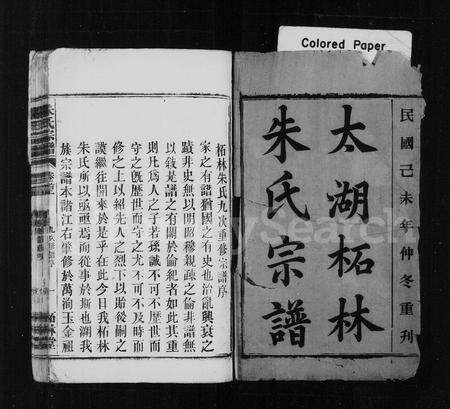 Colored Paper
民國己未年仲冬重刋
太湖柘林
朱氏宗譜
柘林朱氏九次重修宗譜序
家之有譜猶國之有史也治亂興衰之
蹟非史無以明昭穆親疎之倫非譜無
以敍是譜之有關於倫紀者如此其重
則凡爲人之子若孫誠不可不歷世而
守之旣歷世而守之尤不可不及時而
修之上以紹先人之烈下以貽後嗣之
謨繼往開來於是乎在此今日我柘林
朱氏所以亟亟焉而從事於斯也溯我
族宗譜本諸江右肇修於萬洵玉金祖